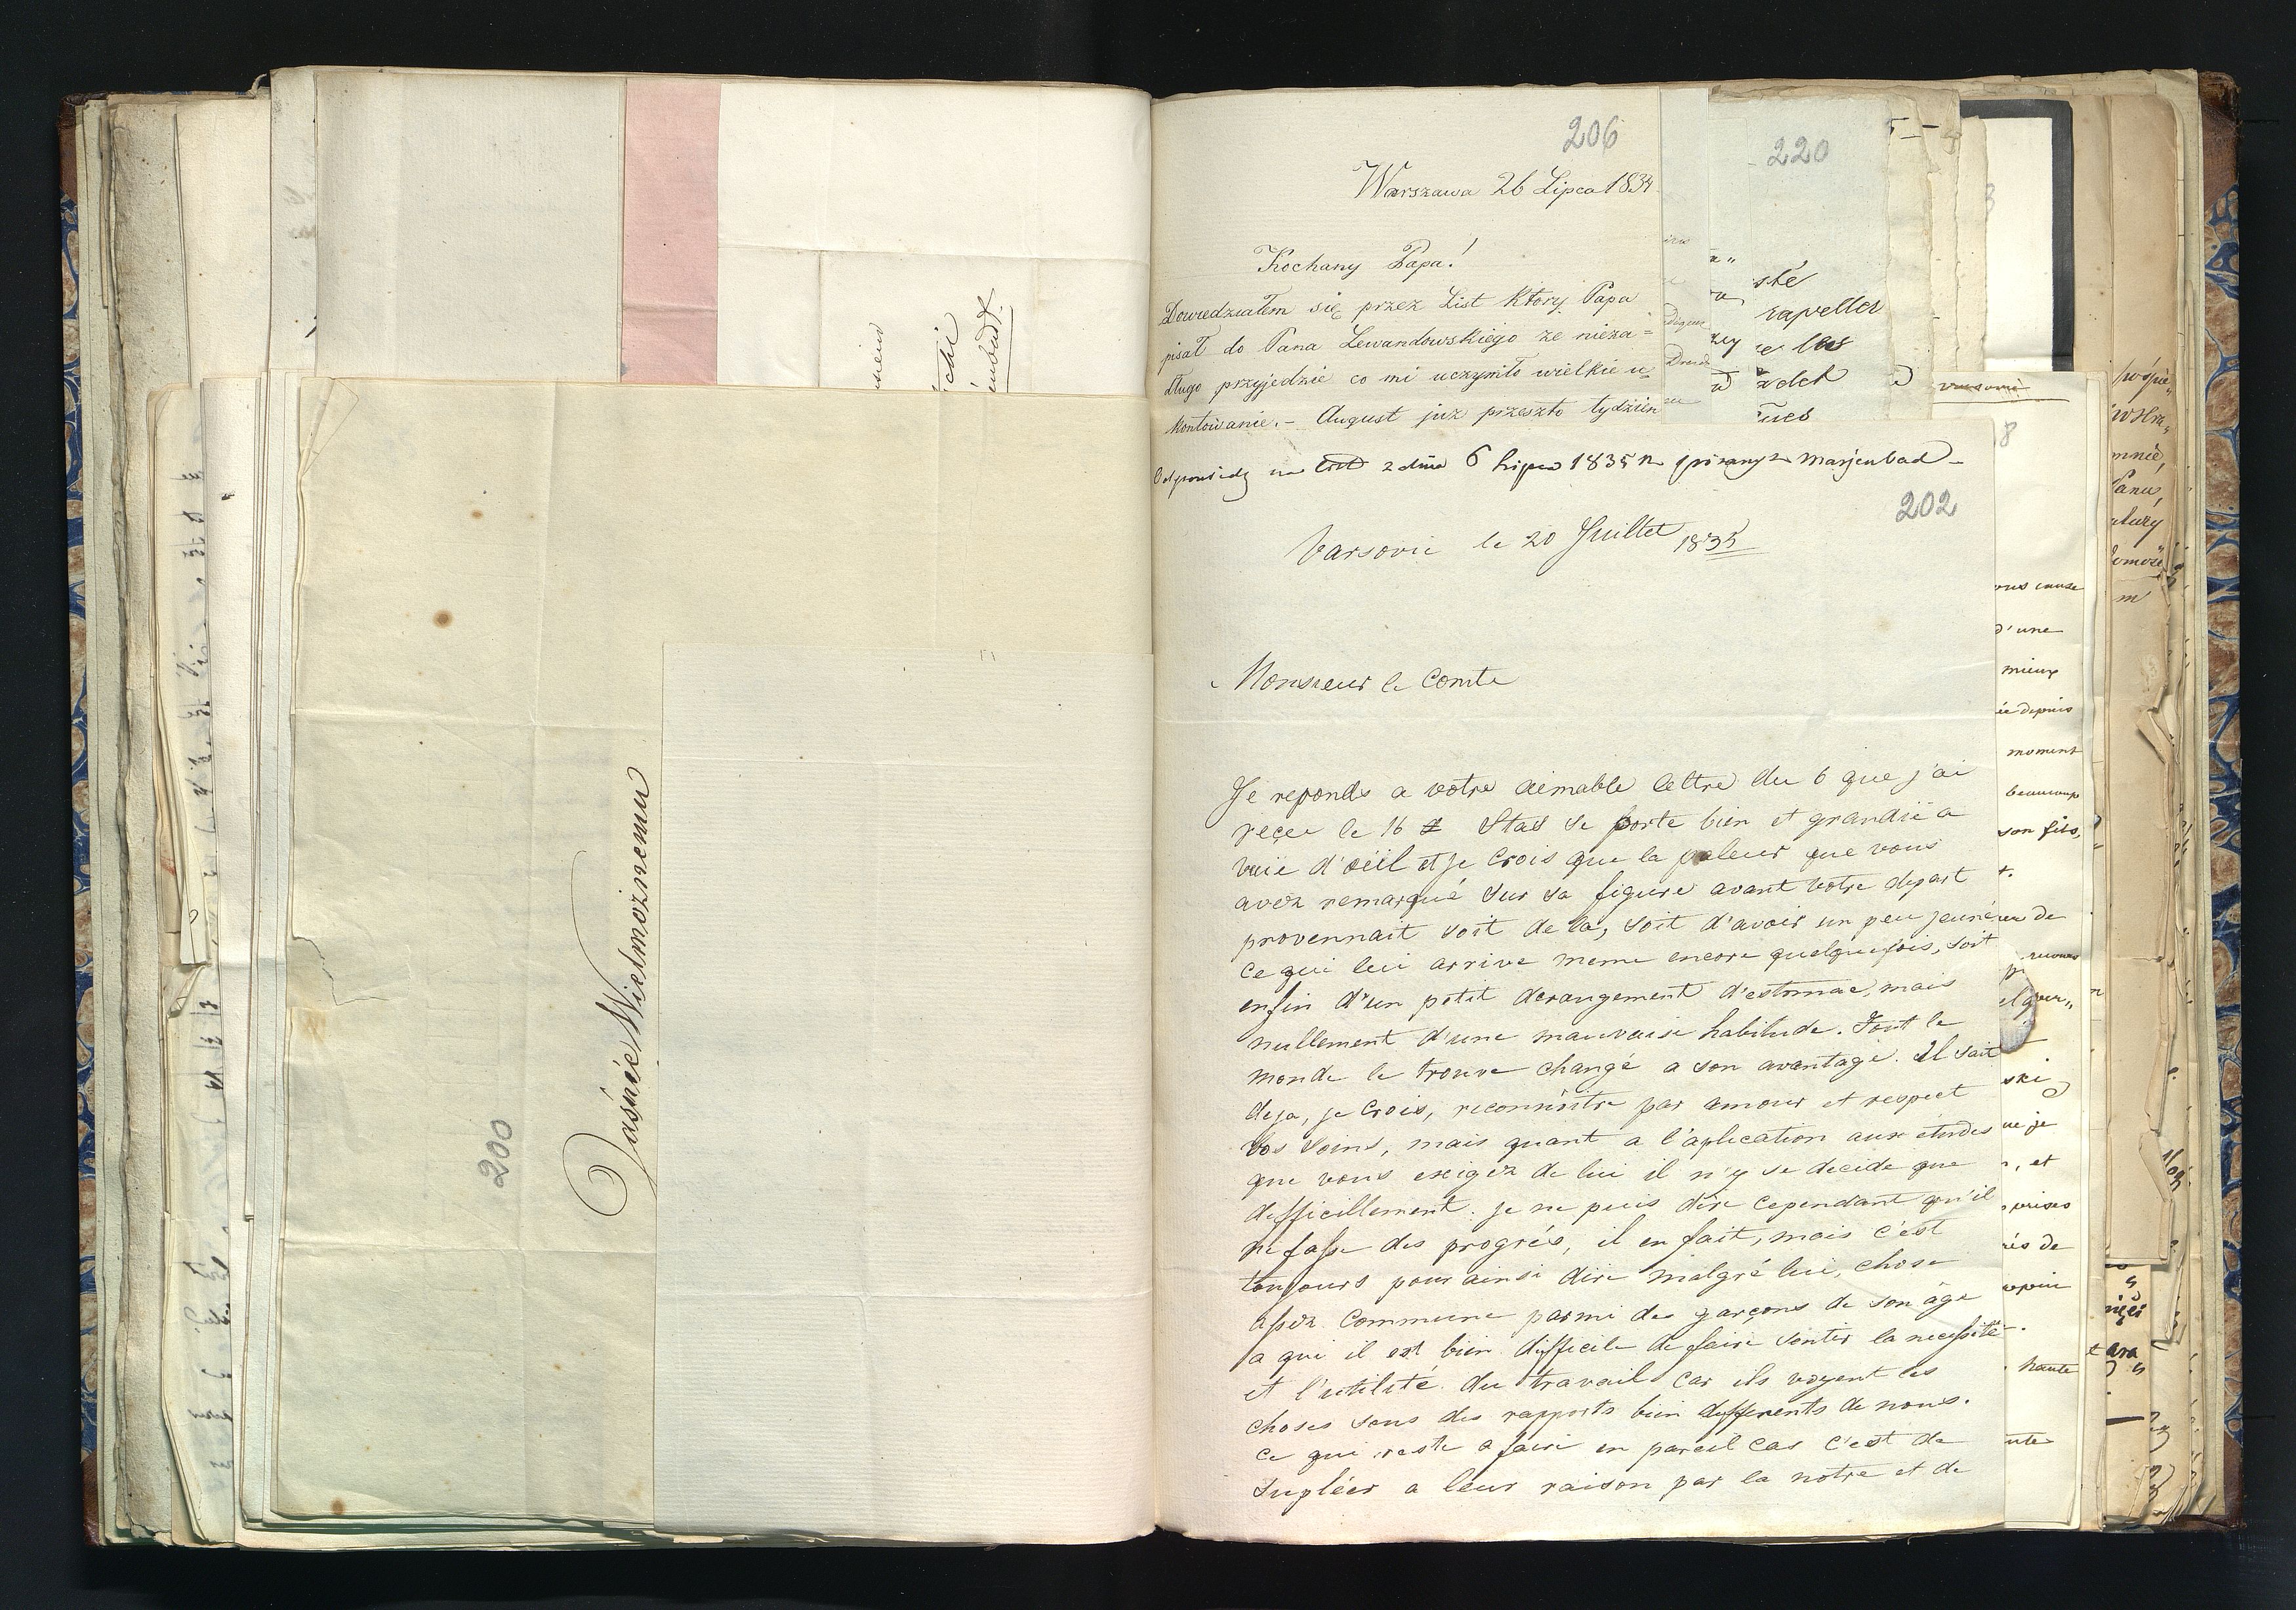 200
Jaśnie Wielmożnemu
206
Warszawa 26 Lipca 1834
Kochany Papa!
Dowiedziałem się przez List który Papa
pisał do Pana Lewandowskiego ze nieza=
długo przyjedzie co mi uczyniło wielkie u=
kontowanie. – August juz przeszło tydzien
220
Odpowiedz na List z dnia 6 Lipca 1835 r. pisany z Marjenbad –
202
Varsovie le 20 Juillet 1835
Monsieur le Comte
Je reponds a votre aimable lettre du 6 que j'ai
reçue le 16 Stas se porte bien et grandië a
vuie d'oëil et je crois que la paleur que vous
avez remarqué sur sa figure avant votre depart
provennait soit de la, soit d'avoir un peu jeuné
ce qui lui arrive meme encore quelquefois, soit
enfin d'un petit derangement d'estomac, mais
nullement d'une mauvaise habitude. Tout le
monde le trouve changé a son avantage. Il sait
deja, je crois, reconnoitre par amour et respect
vos soins, mais quant a l'aplication aux etudes
que vous exigez de lui il n'y se decide que
difficillement. je ne puis dire cependant qu'il
ne fasse des progrés, il en fait, mais c'est
toujours pour ainsi dire malgré lui, chose
assez commune parmi des garçons de son âge
a qui il est bien difficile de faire sentir la necessité
et l'utilité du travail car ils voyent les
choses sous des rapports bien differents de nous.
ce qui reste a faire en pareil cas c'est de
supléer a leur raison par la notre et de
d'une
mieux
moment
beaucoup
son fils,
haute